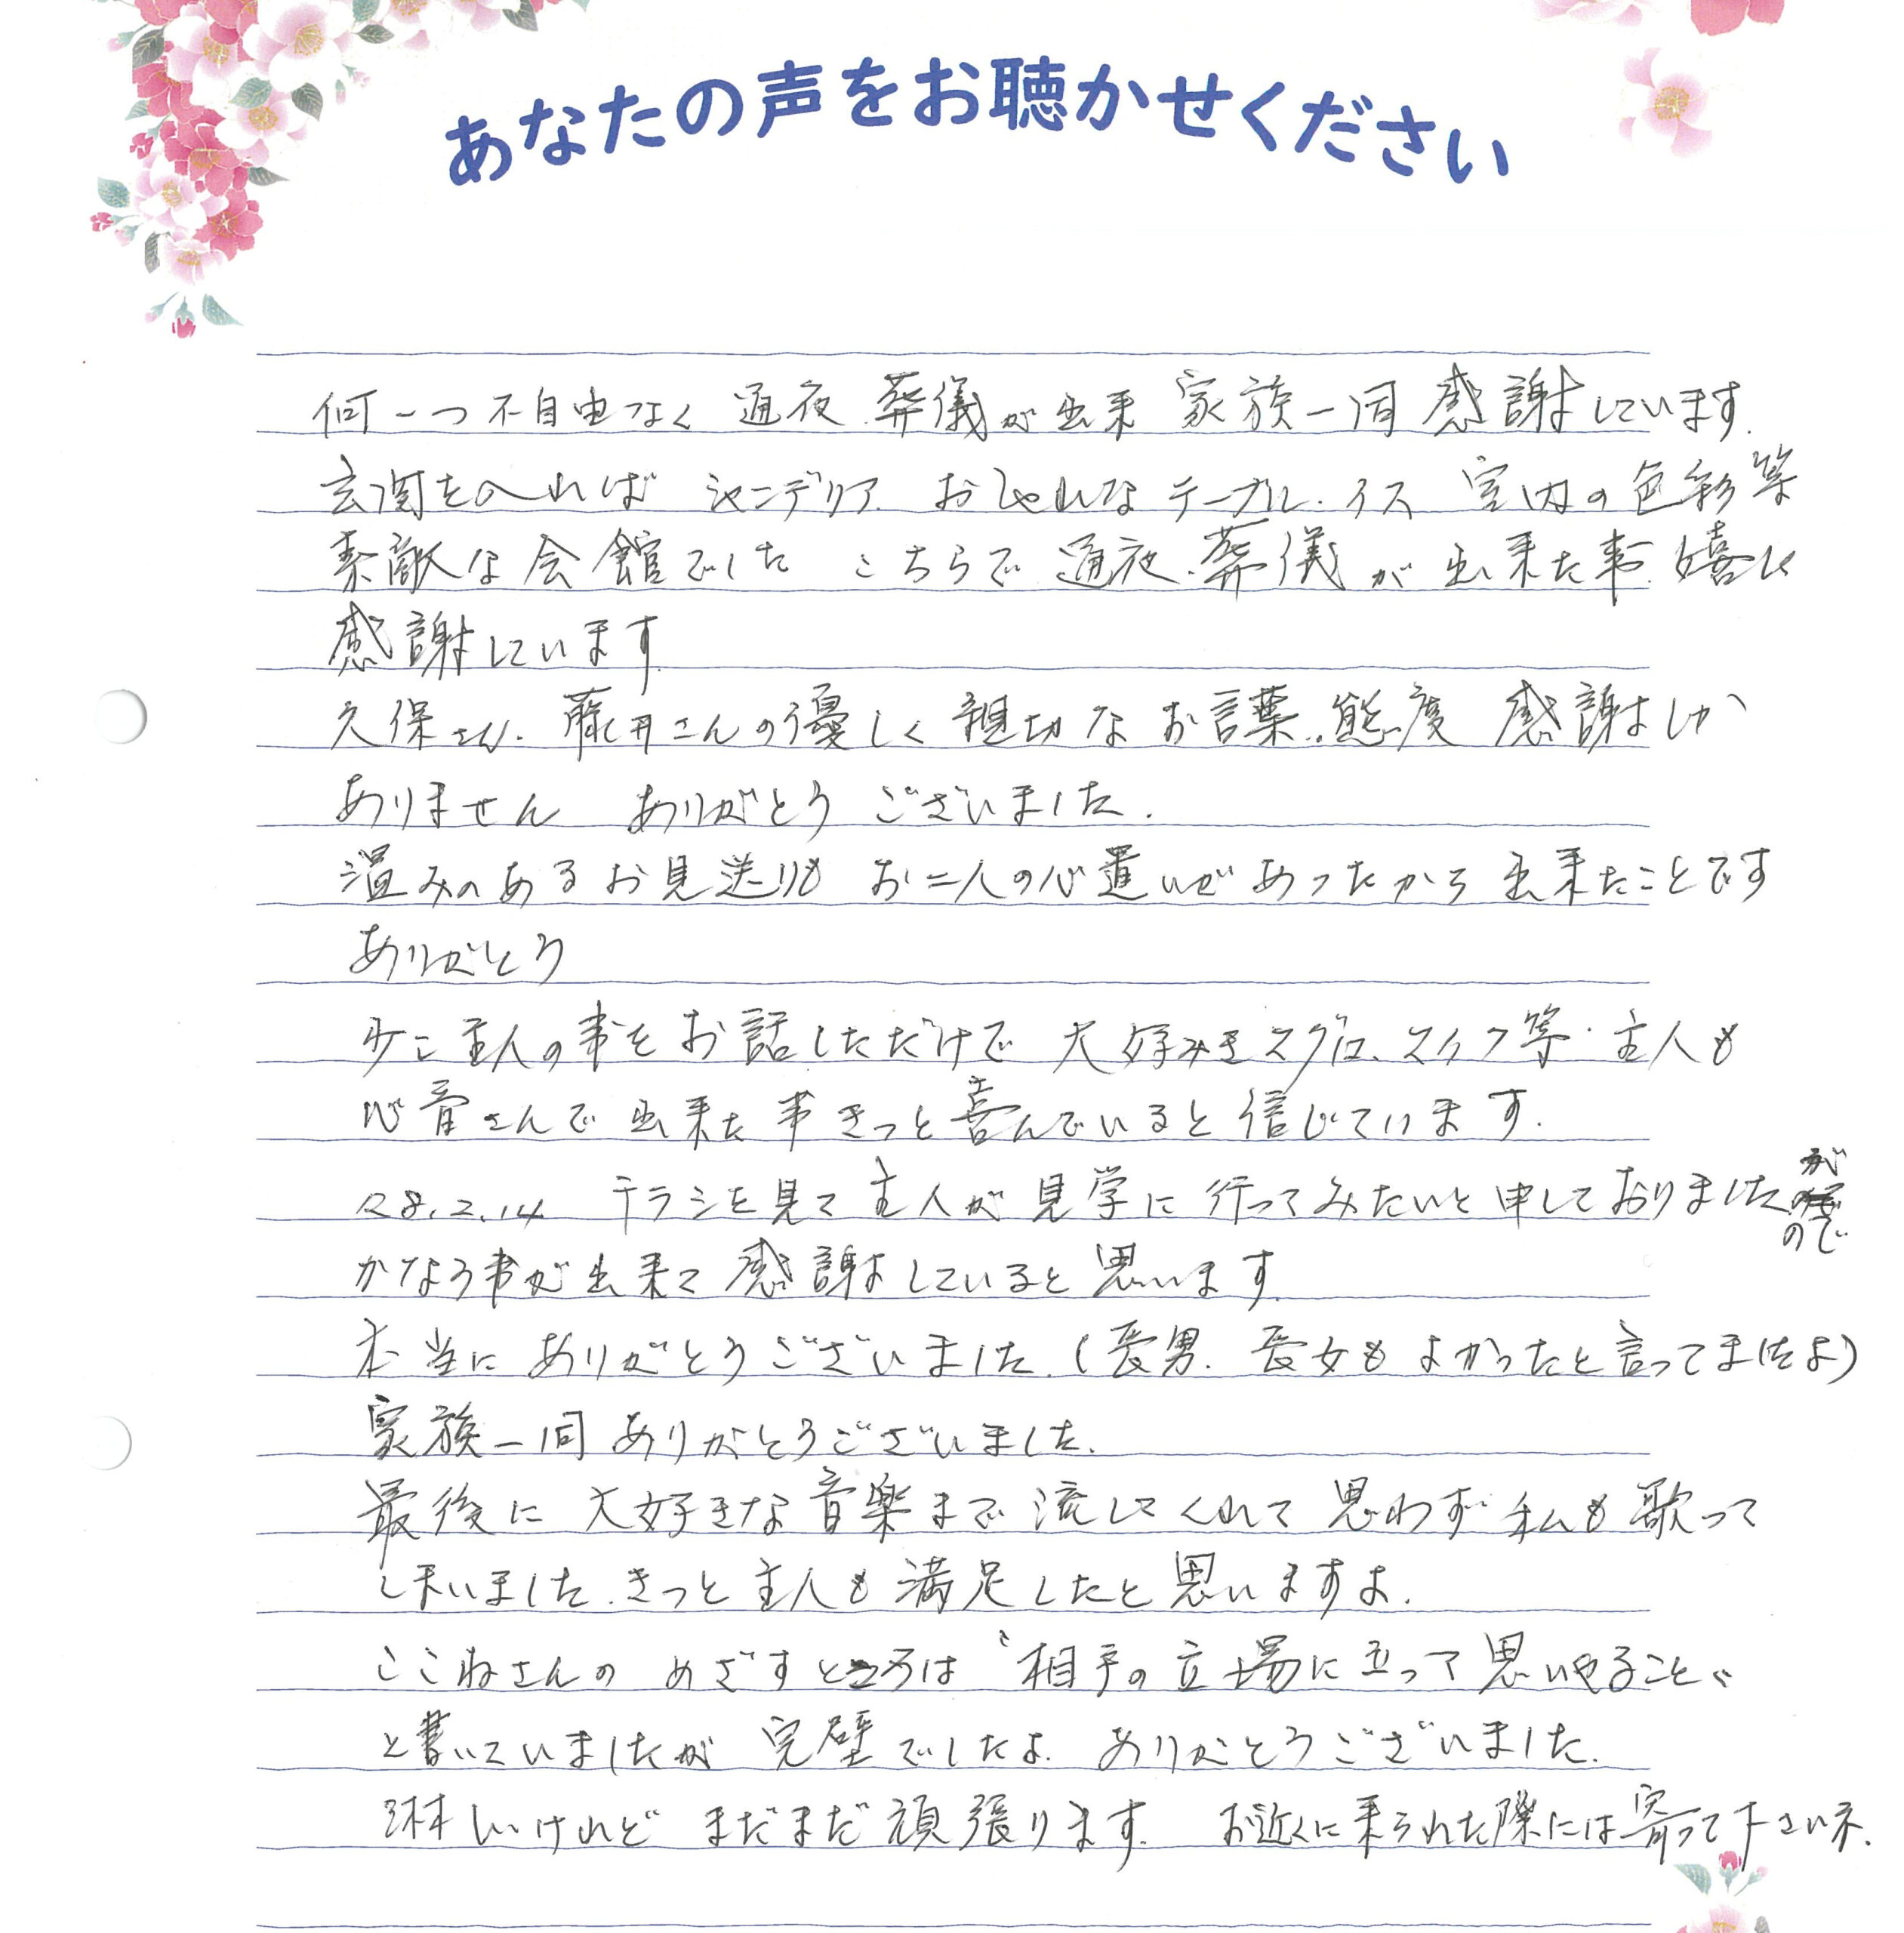 あなたの声をお聴かせください
何一つ不自由なく 通夜.葬儀が出来 家族一同 感謝しています.
玄関を入れば シャンデリア. おしゃれな テーブル.イス 室内の色彩等
素敵な会館でした こちらで 通夜.葬儀が 出来た事. 嬉しく
感謝しています.
久保さん.藤井さんの優しく 親切な お言葉.態度 感謝しか
ありません ありがとう ございました.
温みのあるお見送りも お二人の心遣いがあったから 出来たことです
ありがとう
少こ主人の事をお話しただけで 大好みきマグロ、スイカ等.主人も
心音さんで 出来た事きっと喜んでいると信じています.
R8.2.14 チラシを見て主人が見学に行ってみたいと申しておりましたが
ので
かなう事が出来て感謝していると思います.
本当に ありがとうございました.(長男.長女もよかったと言ってましたよ)
家族一同 ありがとうございました.
最後に 大好きな音楽まで 流してくれて 思わず 私も歌って
しまいました.きっと主人も満足したと思いますよ.
ここねさんの めざすところは〝相手の立場に立って思いやること〟
と書いていましたが 完璧でしたよ. ありがとうございました.
淋しいけれど まだまだ頑張ります. お近くに来られた際には寄って下さいネ.